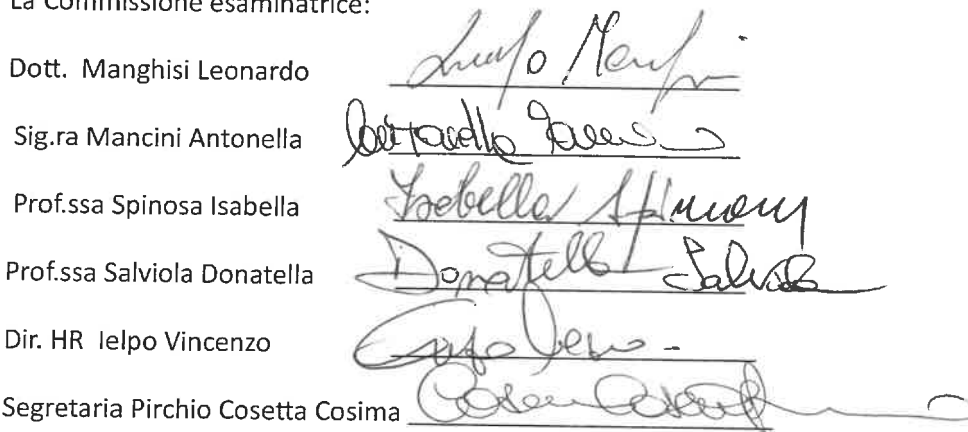 La Commissione esaminatrice:
Dott. Manghisi Leonardo
Sig.ra Mancini Antonella Antonella
Prof.ssa Spinosa Isabella Isabella Spinosa
Prof.ssa Salviola Donatella Donatella Salviola
Dir. HR Ielpo Vincenzo
Segretaria Pirchio Cosetta Cosima